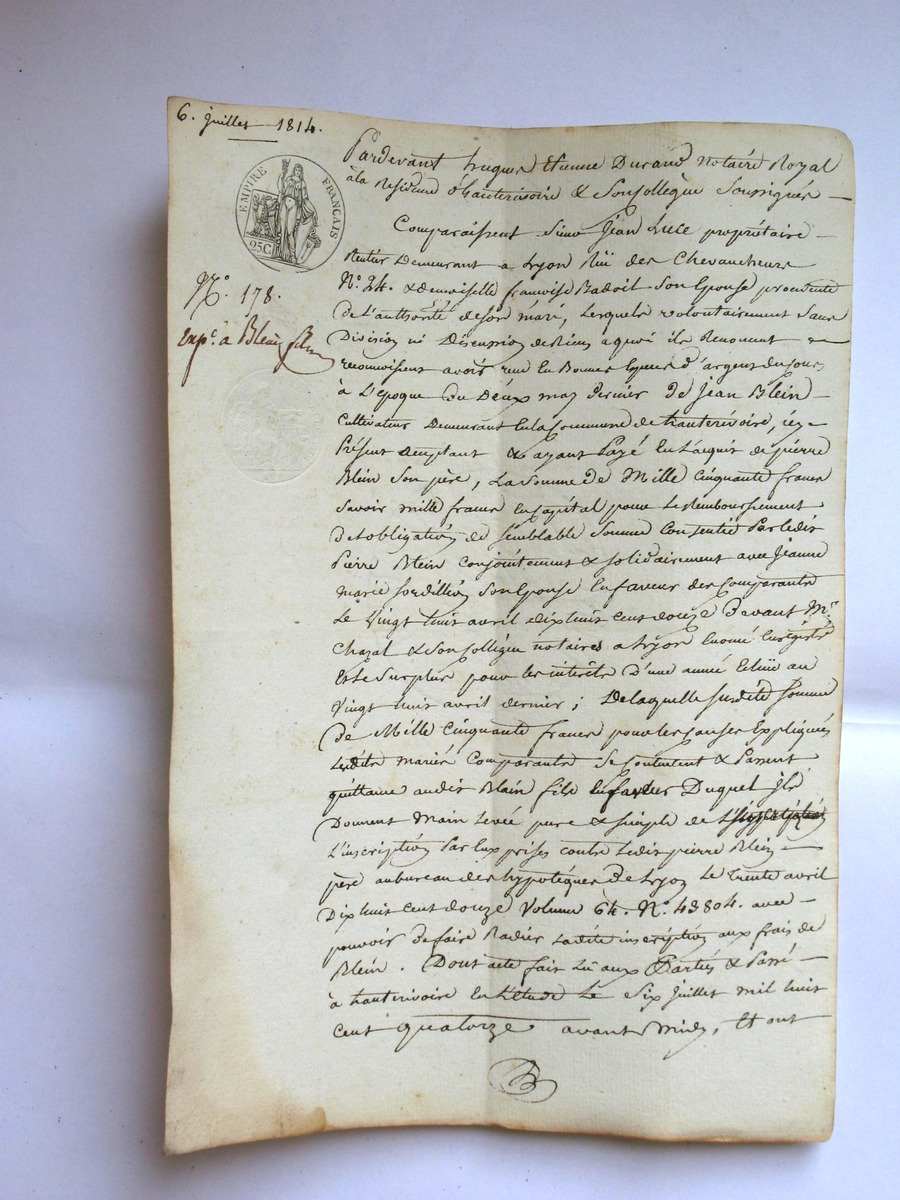 6. juillet 1814.
EMPIRE FRANÇAIS
25C.
N.° 178.
exp.e a Blein fils
Pardevant hugues Etienne Durand notaire Royal
à la Residence d'hauterivoire & Son Collegue Soussignés
Comparaissent Sieur Jean Luce propriétaire
Rentier Demeurant a Lyon Rüe des Chevaucheurs
N.° 24. & demoiselle françoise Badoit Son Epouse procedente
de L'authorité de son mari, Lesquels volontairement Sans
Division ni Discussion de Biens a quoi ils Renoncent
reconnoissent avoir reçu En Bonnes Especes d'argent du Cours
à L'epoque du Deux may Dernier De Jean Blein
Cultivateur Demeurant En la Commune de hauterivoire, icy
Présent aceptant & ayant Payé En L'acquit de pierre
Blein Son père, La Somme de Mille Cinquante francs
Savoir mille francs En capital pour Le Remboursement
D'et obligation de Semblable Somme Consentie Par Ledit
Pierre Blein Conjointement & Solidairement avec Jeanne
marie Sordillion Son Epouse En faveur des Comparants
Le Vingt huit avril dix huit cent douze Devant M.e
Chazal & Son Collegue notaires a Lyon
Et Le Surplus pour Les interêts D'une année Echüe au
Vingt huit avril dernier ; De laquelle Susdite Somme
de Mille Cinquante francs pour Les Causes Expliquées
Lesdits mariés Comparants Se Contentent & Passent
quittance audit Blein fils En faveur Duquel ils
Donnent Main Levée pure & Simple de
L'inscription Par Eux prises contre Ledit pierre Blein
père au bureau des hypotéques de Lyon Le trente avril
Dix huit cent douze Volume 64. N.° 43804. avec
pouvoir de faire Radier Ladite inscription aux frais de
Blein. Dont acte fait Lû aux Parties & Passé
à hauterivoire En L'étude Le Six Juillet mil huit
cent quatorze avant Midy, Et ont